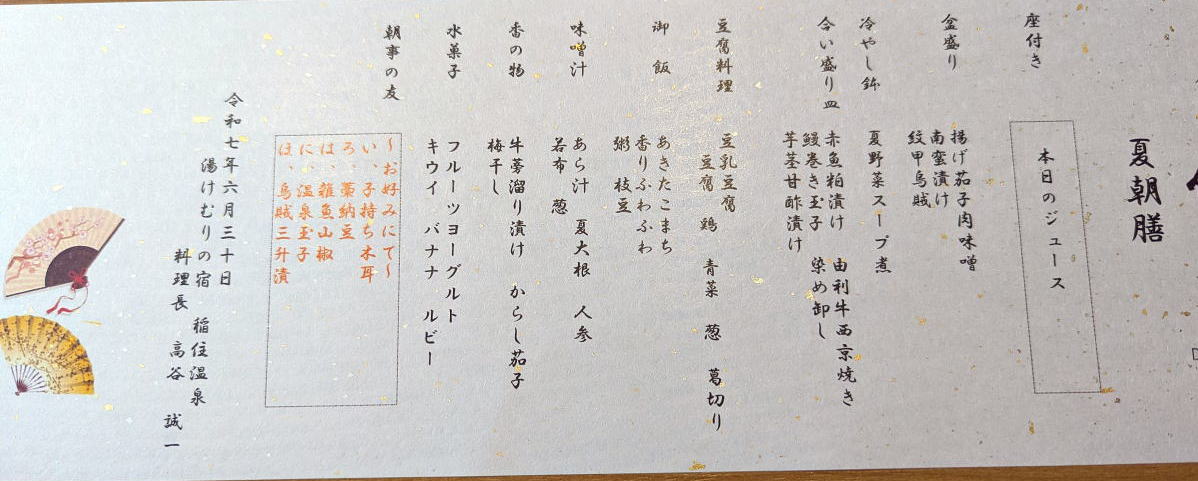 夏朝膳
座付き
本日のジュース
盆盛り
揚げ茄子肉味噌
南蛮漬け
紋甲烏賊
冷やし鉢
夏野菜スープ煮
合い盛り皿
赤魚粕漬け 由利牛西京焼き
鰻巻き玉子 染め卸し
芋茎甘酢漬け
豆腐料理
豆乳豆腐 青菜 葱 葛切り
豆腐 鶏
御飯
あきたこまち
香りふわふわ
粥 枝豆
味噌汁
あら汁 夏大根 人参
若布 葱
香の物
牛蒡溜り漬け からし茄子
梅干し
水菓子
フルーツヨーグルト
キウイ バナナ ルビー
朝事の友
～お好みにて～
い、子持ち木耳
ろ、藁納豆
は、雑魚山椒
に、温泉玉子
ほ、烏賊三升漬
令和七年六月三十日
湯けむりの宿 稲住温泉
料理長 高谷 誠一